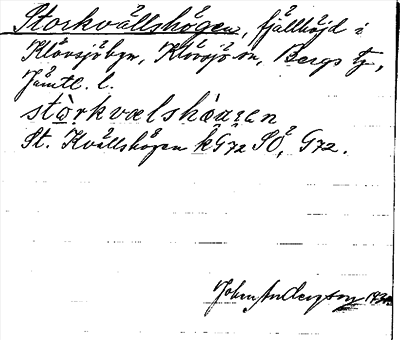 Storkvällshögen, fjällhöjd i
Klövsjöbyn, Klövsjö sn, Bergs tg,
Jämtl. l.
St. Kvällshögen kG72 SO, G72.
John Anderson